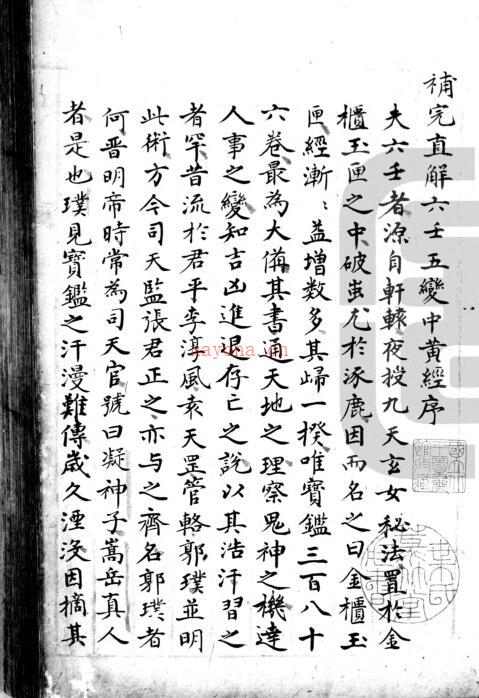 補完直解六壬五變中黃經序
夫六壬者源自軒轅夜授九天玄女秘法置於金
櫃玉匣之中破蚩尤於涿鹿因而名之曰金櫃玉
匣經漸〻益增數多其歸一揆唯寶鑑三百八十
六卷最為大俻其書通天地之理察鬼神之機達
人事之變知吉凶進退存亡之說以其浩汗習之
者罕昔流於君平李淳風袁天罡管輅郭璞並明
此術方今司天監張君正之亦与之齊名郭璞者
何晋明帝時常為司天官號曰凝神子嵩岳真人
者是也璞見寶鑑之汗漫難傳歲久湮没因摘其